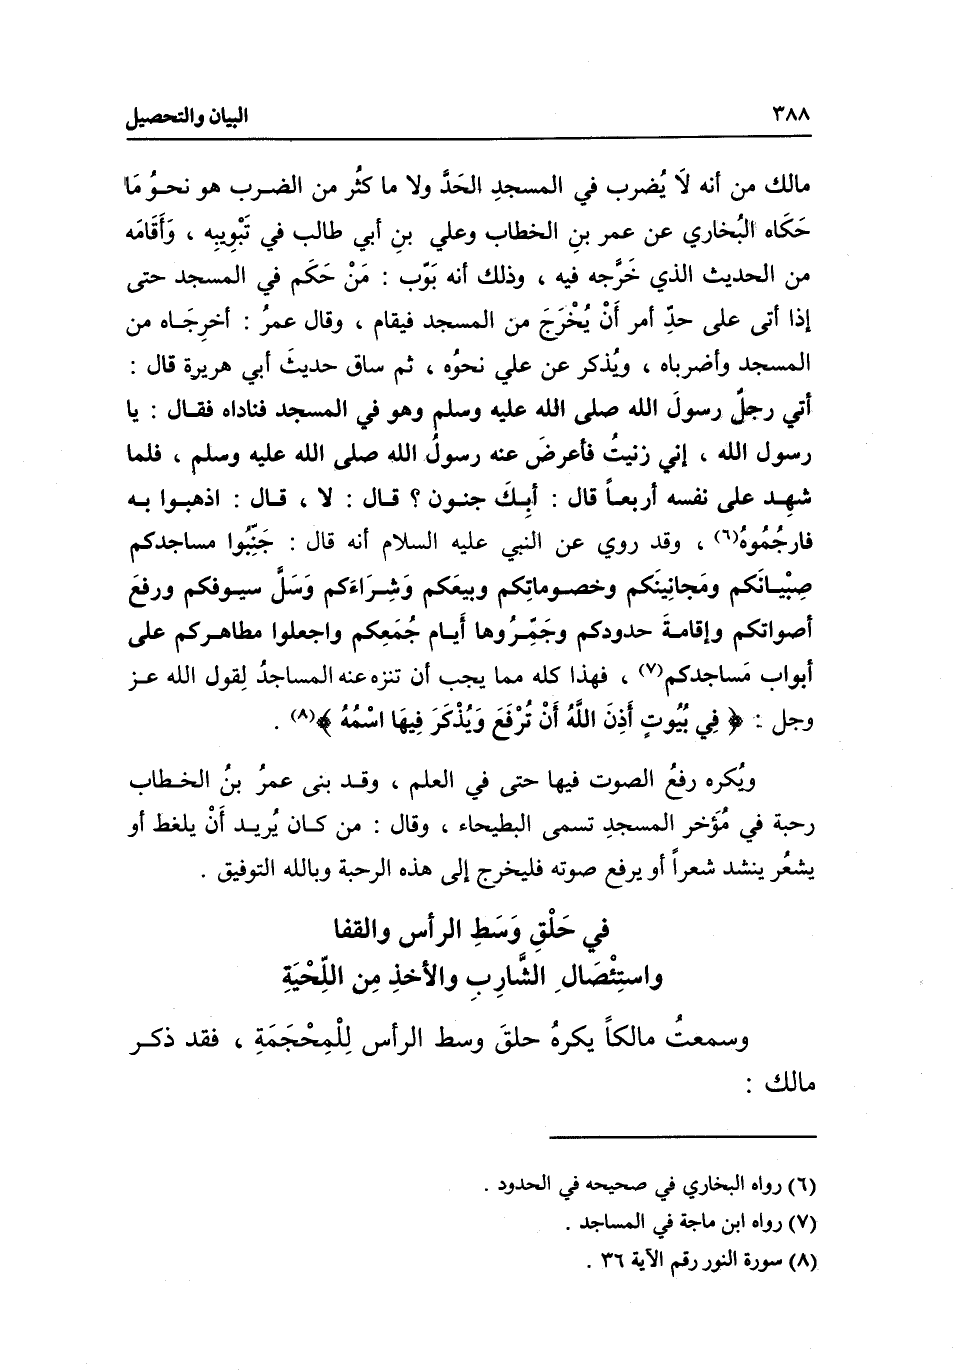 ٣٨٨ البيان والتحصيل
مالك من أنه لَا يُضرب في المسجدِ الحَدَّ ولا ما كثُر من الضرب هو نحوُ مَا
حَكَاه البُخاري عن عمر بنِ الخطاب وعلي بنِ أبي طالب في تَبْوِيبِه ، وَأَقَامَه
من الحديث الذي خَرَّجه فيه ، وذلك أنه بَوّب : مَنْ حَكَم في المسجد حتى
إذا أتى على حدِّ أمر أَنْ يُخْرَجَ من المسجد فيقام ، وقال عمرُ : أخرِجَاه من
المسجد وأضرباه ، ويُذكر عن علي نحوُه ، ثم ساق حديثَ أبي هريرة قال :
أتي رجلٌ رسولَ الله صلى الله عليه وسلم وهو في المسجد فناداه فقال : يا
رسول الله ، إني زنيتُ فأعرضَ عنه رسولُ الله صلى الله عليه وسلم ، فلما
شهِد على نفسه أربعاً قال : أبِكَ جنون ؟ قال : لا ، قال : اذهبوا به
فارجُمُوهُ(٦) ، وقد روي عن النبي عليه السلام أنه قال : جَنِّبُوا مساجدكم
صِبْيَانَكم ومَجانِينَكم وخصوماتِكم وبيعَكم وَشِرَاءَكم وَسَلَّ سيوفكم ورفعَ
أصواتكم وإقامةَ حدودكم وجَمِّرُوها أَيام جُمَعِكم واجعلوا مطاهركم على
أبواب مَساجدكم(٧) ، فهذا كله مما يجب أن تنزه عنه المساجدُ لِقول الله عز
وجل : ﴿ فِي بُيُوتٍ أَذِنَ اللَّهُ أَنْ تُرْفَعَ وَيُذْكَرَ فِيهَا اسْمُهُ ﴾(٨) .
ويُكره رفعُ الصوت فيها حتى في العلم ، وقد بنى عمرُ بنُ الخطاب
رحبة في مُؤَخر المسجدِ تسمى البطيحاء ، وقال : من كان يُريد أَنْ يلغط أو
يشعُر ينشد شعراً أو يرفع صوته فليخرج إلى هذه الرحبة وبالله التوفيق .
في حَلْقِ وَسَطِ الرأس والقفا
واستِئْصَالِ الشَّارِبِ والأخذِ مِن اللِّحْيَةِ
وسمعتُ مالكاً يكرهُ حلقَ وسط الرأس لِلْمِحْجَمَةِ ، فقد ذكر
مالك :
(٦) رواه البخاري في صحيحه في الحدود .
(٧) رواه ابن ماجة في المساجد .
(٨) سورة النور رقم الآية ٣٦ .